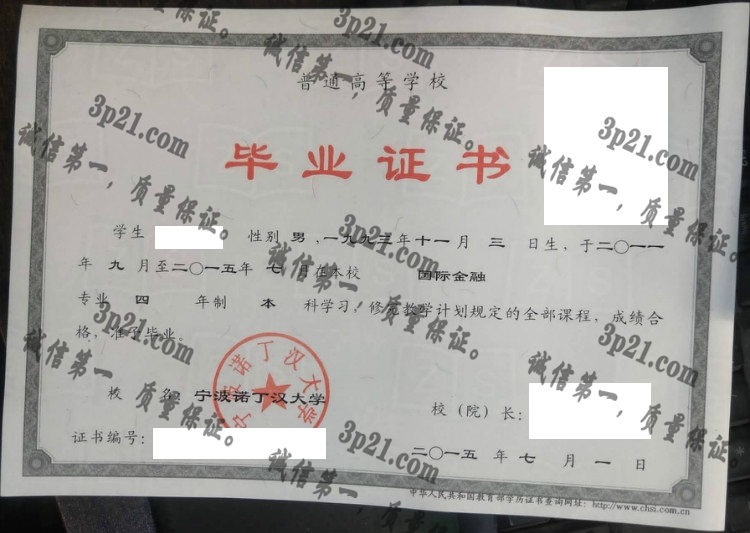 普通高等学校
毕业证书
学生 性别 男 ,一九九三年 十一 月 三 日生, 于二〇一一
年 九 月至二〇一五年 七 月在本校 国际金融
专业 四 年制 本 科学习, 修完教学计划规定的全部课程, 成绩合
格, 准予毕业。
校 名: 宁波诺丁汉大学
校（院）长:
证书编号:
二〇一五 年 七 月 一 日
中华人民共和国教育部学历证书查询网址: http://www.chsi.com.cn
宁波诺丁汉大学
3p21.com
诚信第一，质量保证。
3p21.com
诚信第一，质量保证。
3p21.com
诚信第一，质量保证。
3p21.com
诚信第一，质量保证。
3p21.com
诚信第一，质量保证。
3p21.com
诚信第一，质量保证。
3p21.com
诚信第一，质量保证。